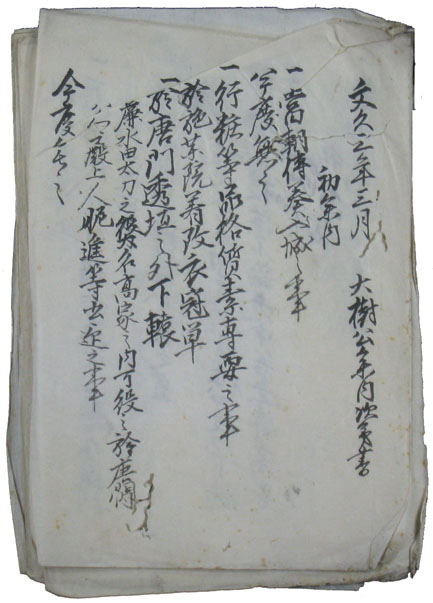 文久三年三月 大樹公参内次第書
初参内
一當朝傳奏入城之事
今度無之
一行粧等品格質素専要之事
於施薬院着改衣冠単
一於唐門透垣之外下轅
廉水昇太刀之役名高家之内可役之於唐門
公殿上人昵進等出迎之事
今度無之